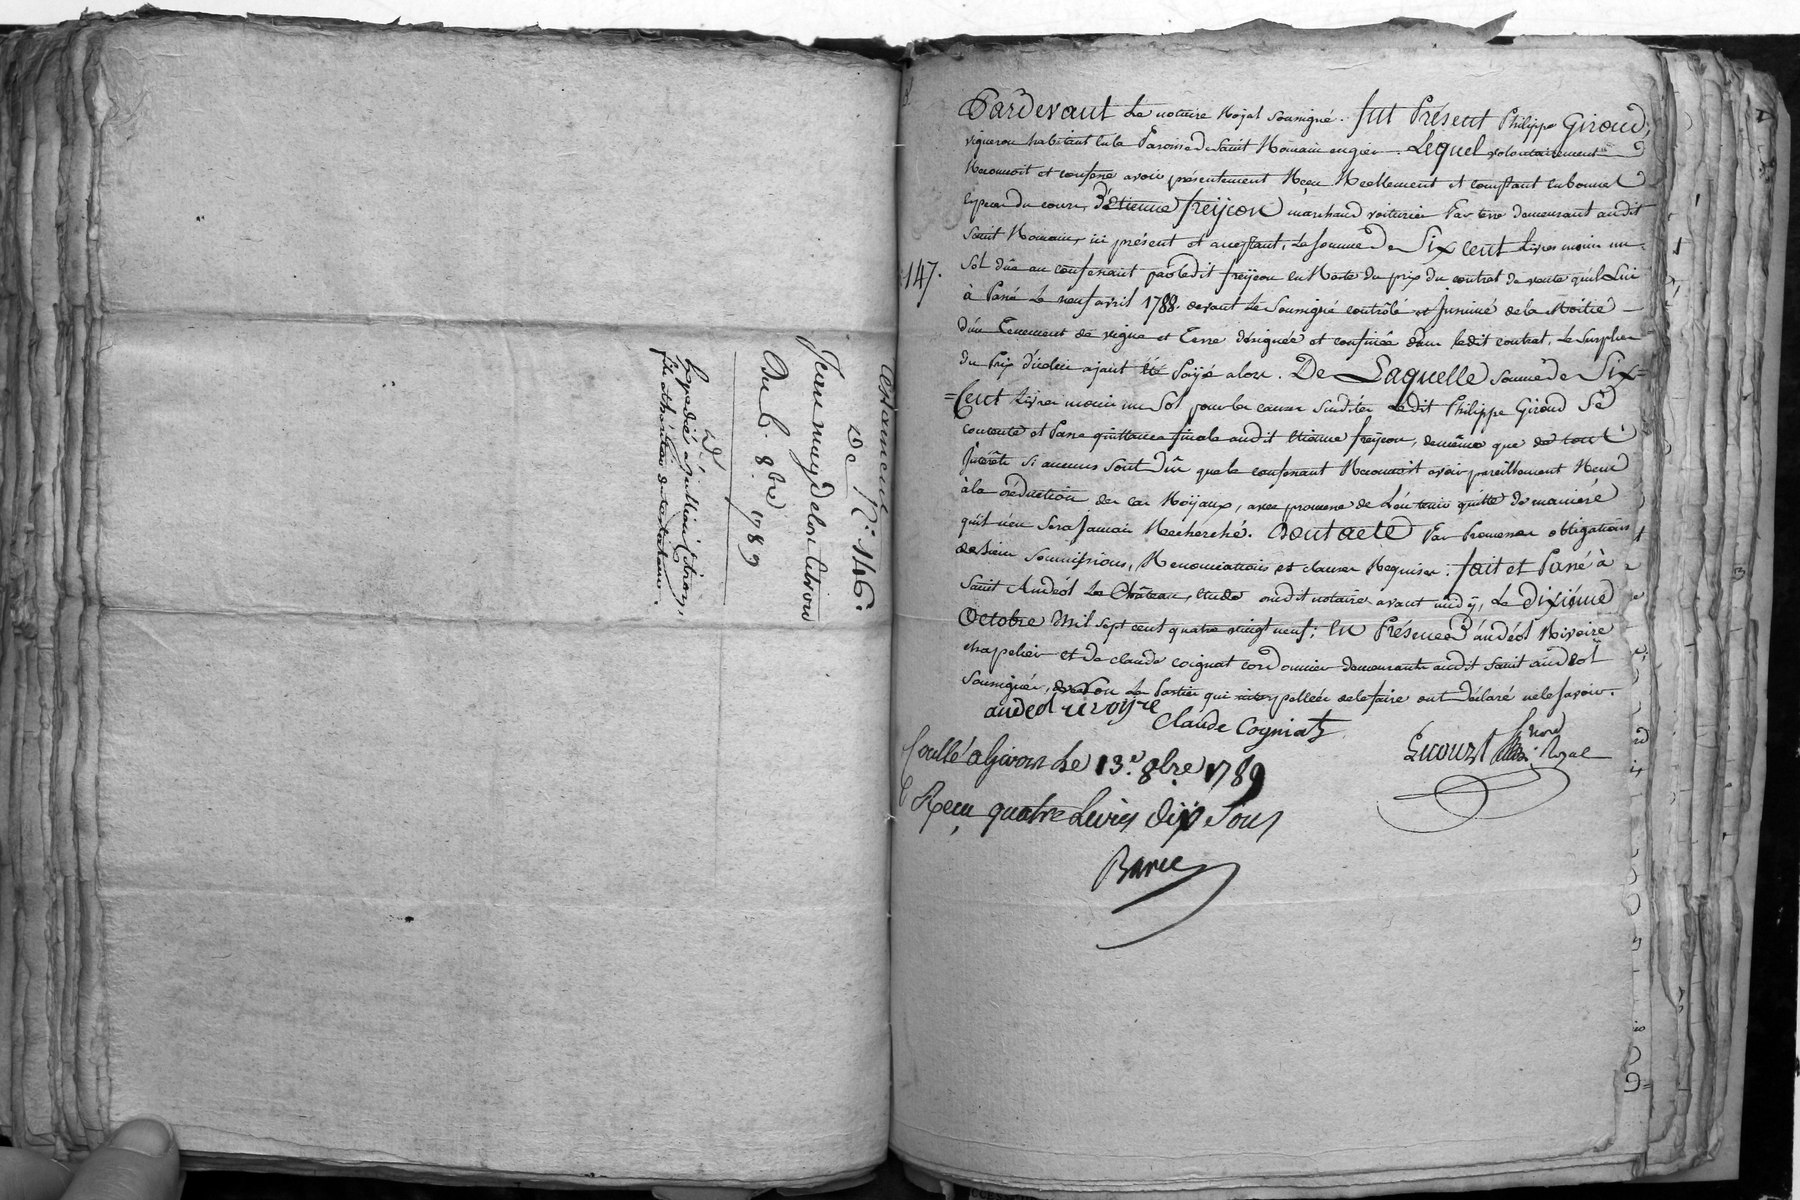 Testament N.° 146.
De
Jean may
Du 6. 8bre 1789
Expedié
147.
Pardevant Le notaire Royal soussigné. fut Présent Philippe Giroud,
vigneron habitant en la Paroisse de Saint Romain en gier. Lequel volontairement
Reconnoit et confesse avoir présentement Reçu Réellement et comptant en bonnes
Espèces du cours, d'Etienne freÿcon marchand voiturier Par terre demeurant audit
Saint Romain, ici présent et acceptant, La somme de Six cent Livres moin un
Sol dûe au confessant par ledit freÿcon en Reste du prix du contrat de vente qu'il Lui
à Passé Le neuf avril 1788. devant Le Soussigné contrôlé et Insinué de la Moitié
d'un Tenement de vigne et Terre désignée et confinée dans ledit contrat, Le Surplus
du Prix d'icelui ajant été Paÿé alors. De Laquelle Somme de Six=
=Cent Livres moin un Sol pour les causes Susdites Ledit Philippe Giroud Se
contente et Passe quittance finale audit Etienne freÿcon, de même que de tout
Intérêts si aucuns sont Dûs que le confessant Reconnoit avoir pareillement Reçu
à la réduction des cas Roÿaux, avec promesse de L'en tenir quitte de manière
qu'il n'en Sera Jamais Recherché. Dont acte Par Promesses obligations
de biens Soumissions, Renonciations et clauses Requises. fait et Passé à
Saint Andéol Le Château, Etude dudit notaire avant midÿ, Le dixième
Octobre Mil Sept cent quatre vingt neuf; En Présence d'andéol Rivoire
chapelier et de Claude Coignat cordonnier demeurants audit Saint andéol
Soussignés, Les Parties qui interpellées de le faire ont déclaré ne le savoir.
andeol rivoyre
Claude Cogniat
Royal
Conllé a Givors Le 13.e 8bre 1789
Reçu quatre Livres dix Sous